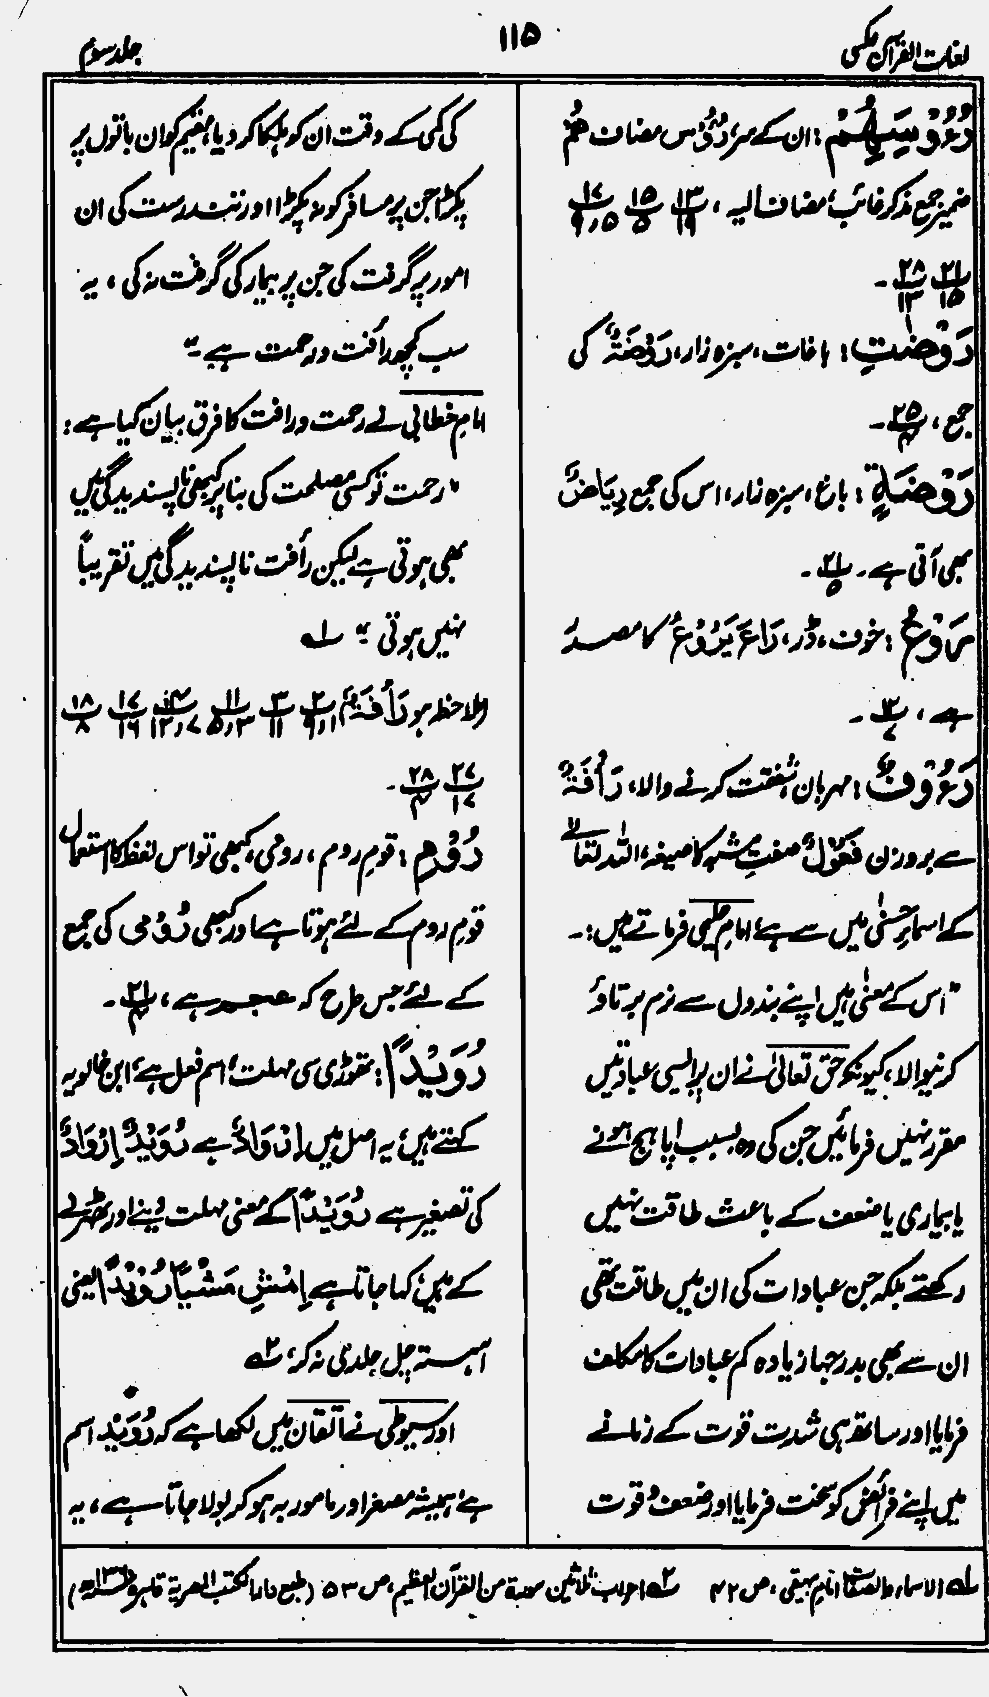 لغات القرآن عکسی
۱۱۵
جلد سوم
رُءُوْسِهِمْ : ان کے سر، رُءُوْس مضاف ھُمْ
ضمیر جمع مذکر غائب، مضاف الیہ، ۱۳/۱۹ ۱۵/۵ ۱۷/۹،۵
۲۱/۱۵ ۲۸/۱۳ ۔
رَوْضٰتِ : باغات، سبزہ زار، رَوْضَۃٌ کی
جمع، ۲۵/۴ ۔
رَوْضَۃٍ : باغ، سبزہ زار، اس کی جمع رِیَاضٌ
بھی آتی ہے ۔ ۲۱/۵ ۔
رَوْعُ : خوف، ڈر، رَاعَ یَرُوْعُ کا مصدر
ہے، ۱۲/۷ ۔
رَءُوْفٌ : مہربان، شفقت کرنے والا، رَأْفَۃٌ
سے بروزن فَعُوْلٌ صفت مشبہ کا صیغہ، اللہ تعالیٰ
کے اسماء حسنٰی میں سے ہے، امام حلیمی فرماتے ہیں :۔
"اس کے معنٰی ہیں اپنے بندوں سے نرم برتاؤ
کرنیوالا، کیونکہ حق تعالیٰ نے ان پر ایسی عبادتیں
مقرر نہیں فرمائیں جن کی وہ بسبب اپاہج ہونے
یا بیماری یا ضعف کے باعث طاقت نہیں
رکھتے بلکہ جن عبادات کی ان میں طاقت تھی
ان سے بھی بدرجہا زیادہ کم عبادات کا مکلف
فرمایا اور ساتھ ہی شدت قوت کے زمانے
میں اپنے فرائض کو سخت فرمایا اور ضعف قوت
کی کمی کے وقت ان کو ہلکا کر دیا، مقیم کو ان باتوں پر
پکڑا جن پر مسافر کو نہ پکڑا اور تندرست کی ان
امور پر گرفت کی جن پر بیمار کی گرفت نہ کی، یہ
سب کچھ رأفت و رحمت ہے ۔"
امام خطابی نے رحمت و رافت کا فرق بیان کیا ہے :
"رحمت تو کسی مصلحت کی بنا پر کبھی ناپسندیدگی میں
بھی ہوتی ہے لیکن رأفت ناپسندیدگی میں تقریباً
نہیں ہوتی" ؎۱
ملاحظہ ہو رَأْفَۃٌ، ۲/۹،۱ ۳/۱۱ ۱۱/۵،۳ ۱۴/۱۲،۷ ۱۷/۱۶ ۱۸/۸
۲۷/۱۷ ۲۸/۴ ۔
رُوْم : قوم روم، رومی، کبھی تو اس لفظ کا استعمال
قوم روم کے لئے ہوتا ہے اور کبھی رُوْمی کی جمع
کے لئے جس طرح کہ عجم ہے، ۲۱/۴ ۔
رُوَیْدًا : تھوڑی سی مہلت، اسم فعل ہے، ابن خالویہ
کہتے ہیں، یہ اصل میں اِرْوَادٌ ہے رُوَیْدٌ اِرْوَادٌ
کی تصغیر ہے رُوَیْدًا کے معنی مہلت دینے اور ٹھہرنے
کے ہیں، کہا جاتا ہے اِمْشِ مَشْیًا رُوَیْدًا یعنی
آہستہ چل جلدی نہ کر، ؎۲
اور سیوطی نے اتقان میں لکھا ہے کہ رُوَیْد اسم
ہے، ہمیشہ مصغر اور مامور بہ ہو کر بولا جاتا ہے، یہ
؎۱ الاسماء والصفات امام بیہقی، ص ۴۲ ؎۲ اعراب ثلاثین سورۃ من القرآن العظیم، ص ۵۳ (طبع دار الکتب المصریۃ قاہرہ